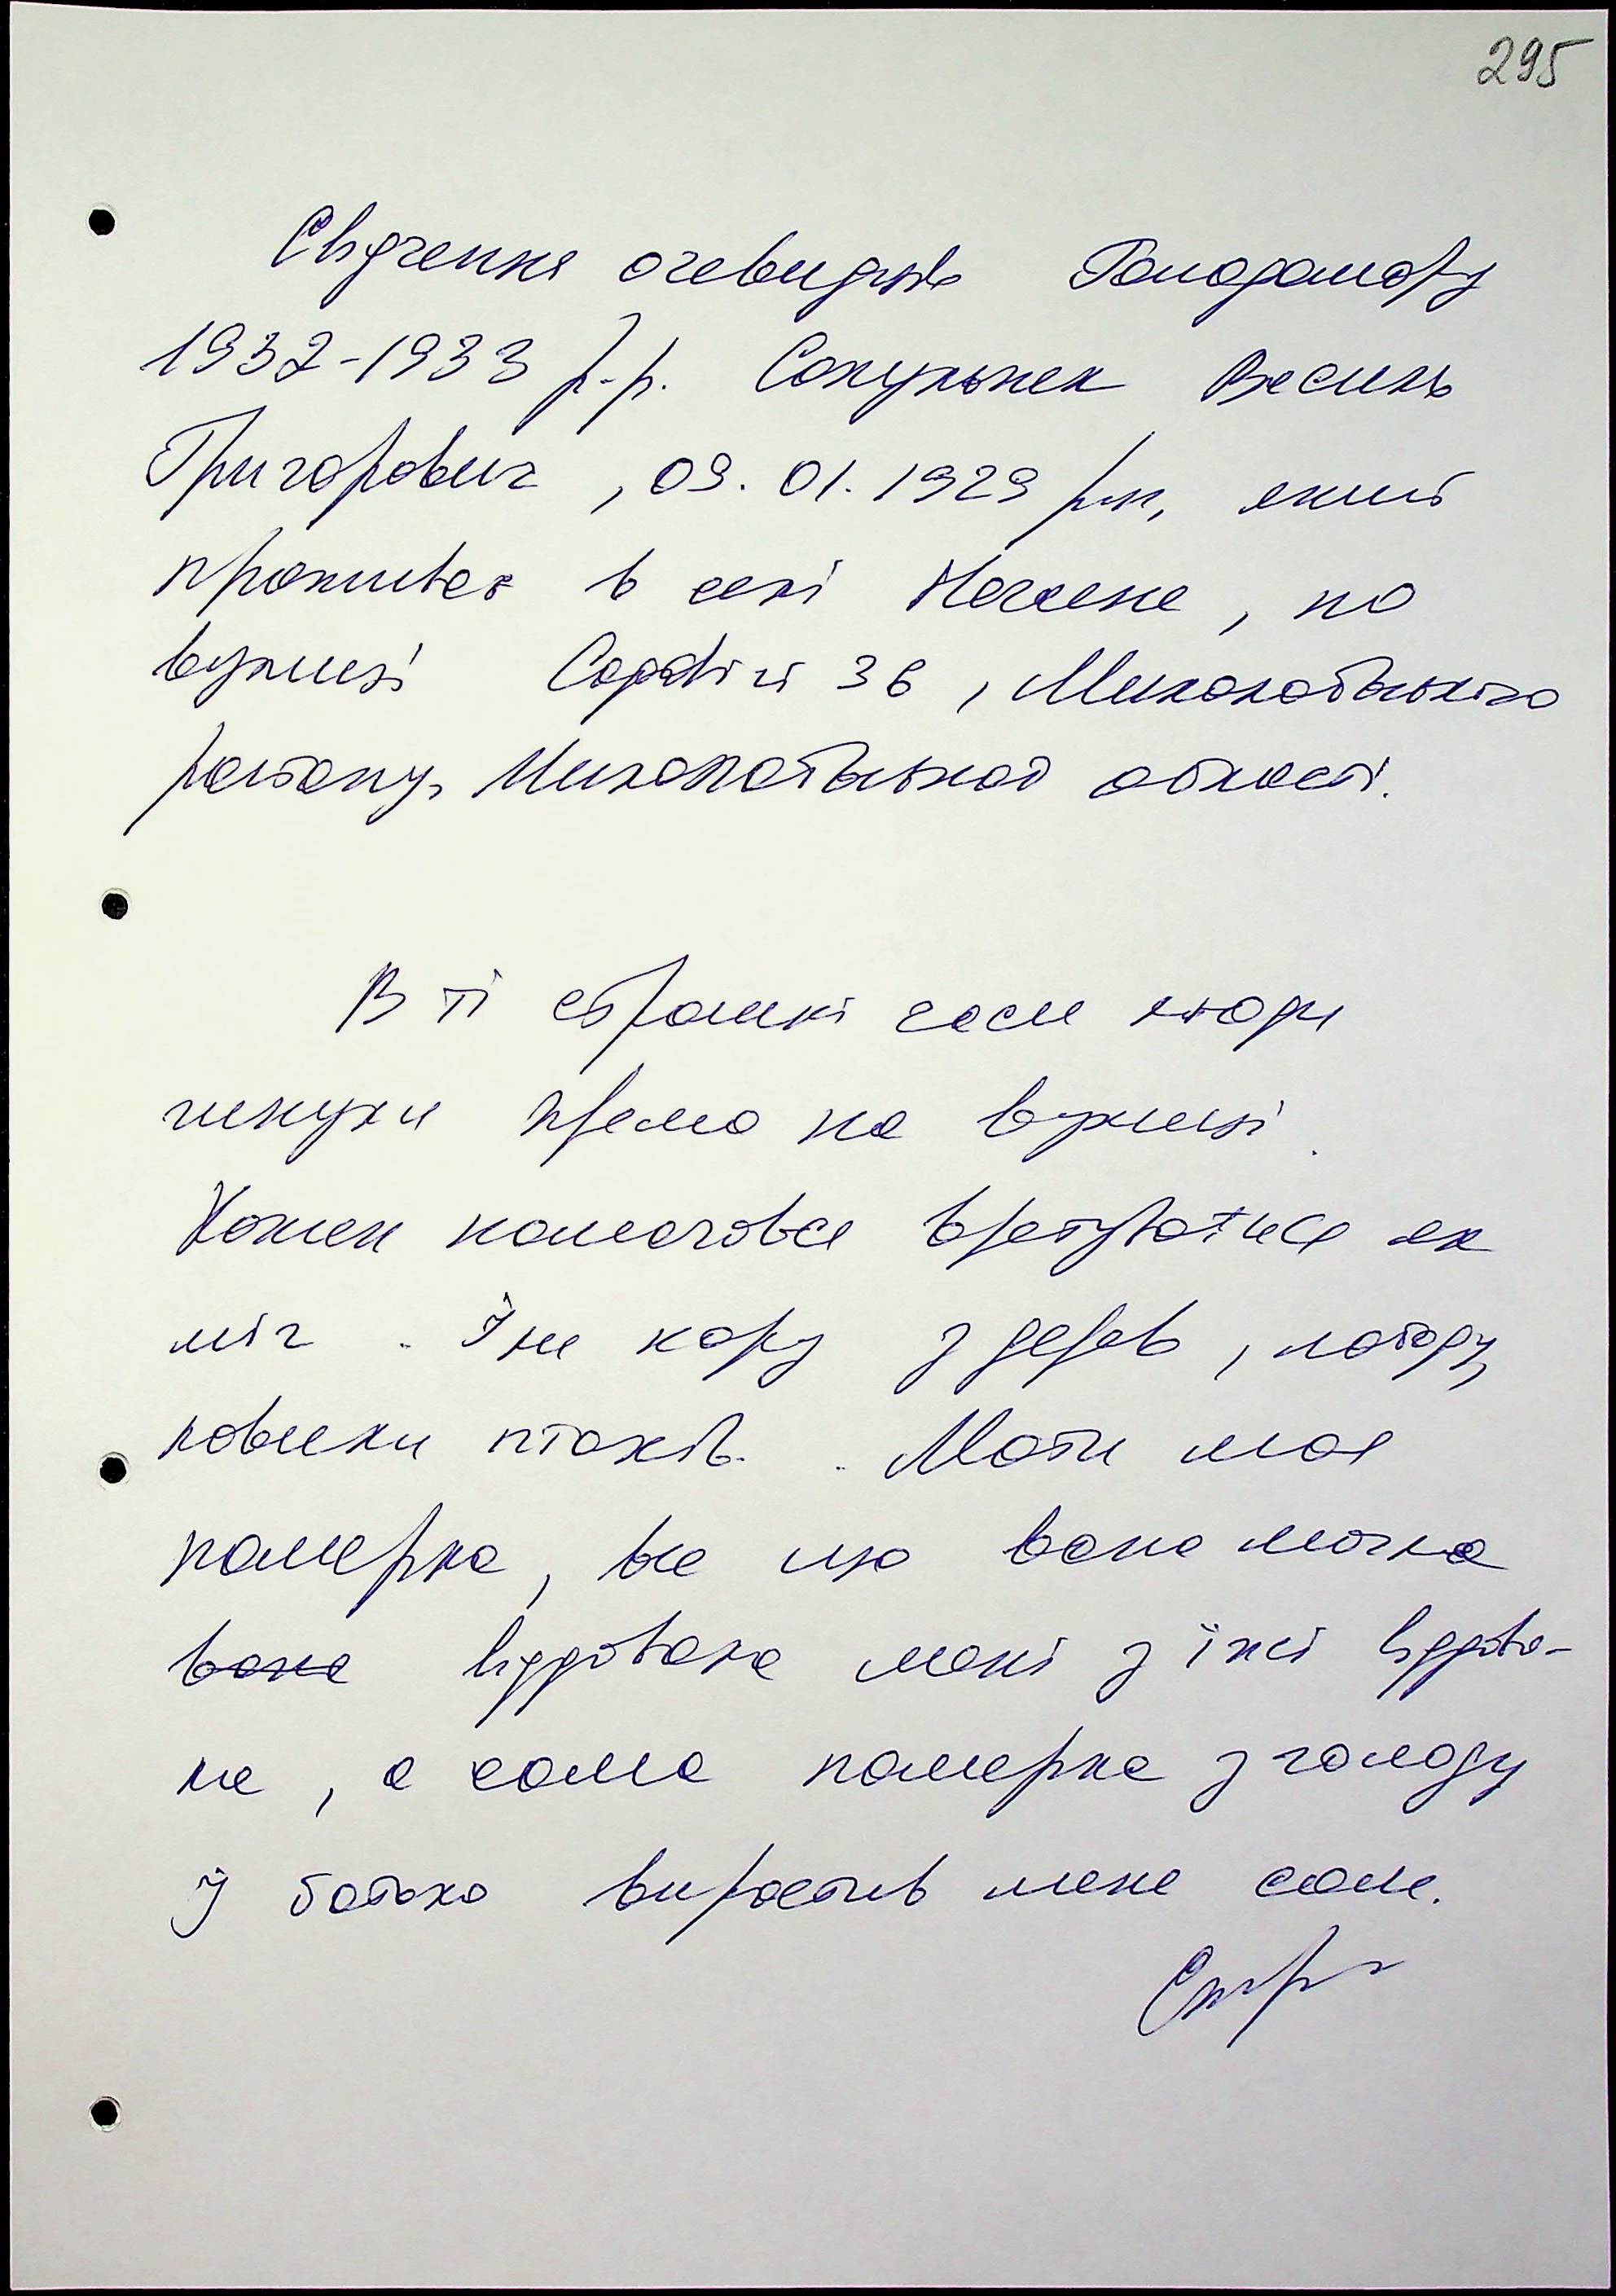 295
Свідчення очевидців Голодомору
1932-1933 р.р. Сокульник Василь
Григорович, 09.01.1929 р.н, який
проживає в селі Нечаяне, по
вулиці Садовій 36, Миколаївського
району, Миколаївської області.
В ті страшні часи люди
гинули прямо на вулиці.
Кожен намагався врятуватися як
міг. Їли кору з дерев, лободу,
ловили птахів. Мати моя
померла, все що вона могла
вона віддавала мені з їжі віддава-
ла, а сама померла з голоду
Й батько виростив мене сам.